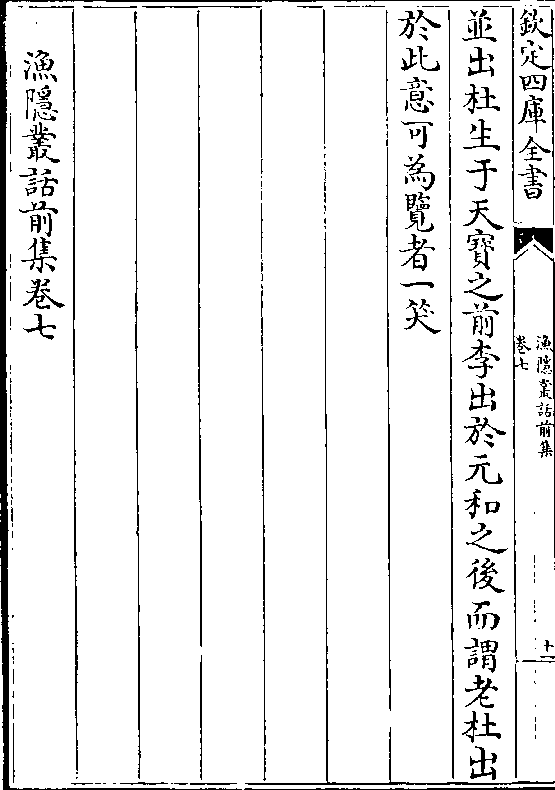 欽定四庫全書
漁隱叢話前集
卷七
十一
並出杜生于天寶之前李出於元和之後而謂老杜出
於此意可為覽者一笑
漁隱叢話前集卷七